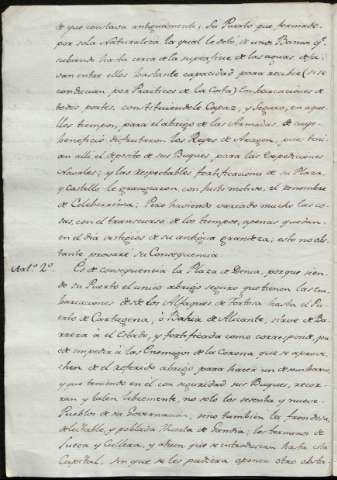 de que constava antiguamente; Su Puerto que formado
por sola Naturaleza la qual le dotó de una Barra q.e
subiendo hasta cerca de la superficie de las aguas, de
entre ellos bastante capacidad para recibir (si se
conducian, por Practicos de la Costa) Embarcaciones de
todos portes, constituiendole Capaz, y seguro, en aque
llos tiempos, para el abrigo de las Armadas de cuyo
beneficio disfrutaron los Reyes de Aragon, que tení
an allí el deposito de sus Buques, para las Expediciones
Navales; y las respectables fortificaciones de su Plaza,
y Castillo le grangearon, con justo motivo, el renombre
de Celeberrima; Pero haviendo variado mucho las co
sas, con el transcurso de los tiempos, apenas quedan
en el dia vestigios de su antigua grandeza; esto no obs
tante provare su Consequencia.
Art.o 2.o Es de consequencia la Plaza de Denia, porque sien
do su Puerto el unico abrigo seguro que tienen las Em
barcaciones desde los Alfaques de Tortosa hasta el Pu
erto de Cartagena, ó Bahia de Alicante, sirve de Bar
rera á el Estado, y fortificada como corresponde, pu
de impedir á los Enemigos de la Corona, que se aprove
chen de el referido abrigo para hacer un desembarco,
y que teniendo en el con seguridad sus Buques, recor
ran y talen libremente, no solo los sesenta y nueve
Pueblos de su Governacion, sino también la frondosa,
dilatable, y poblada Huerta de Gandia; los terminos de
Sueca y Cullera, y aun que se introduzcan hasta esta
Capital, sin que se les pudiera oponer otro obsta